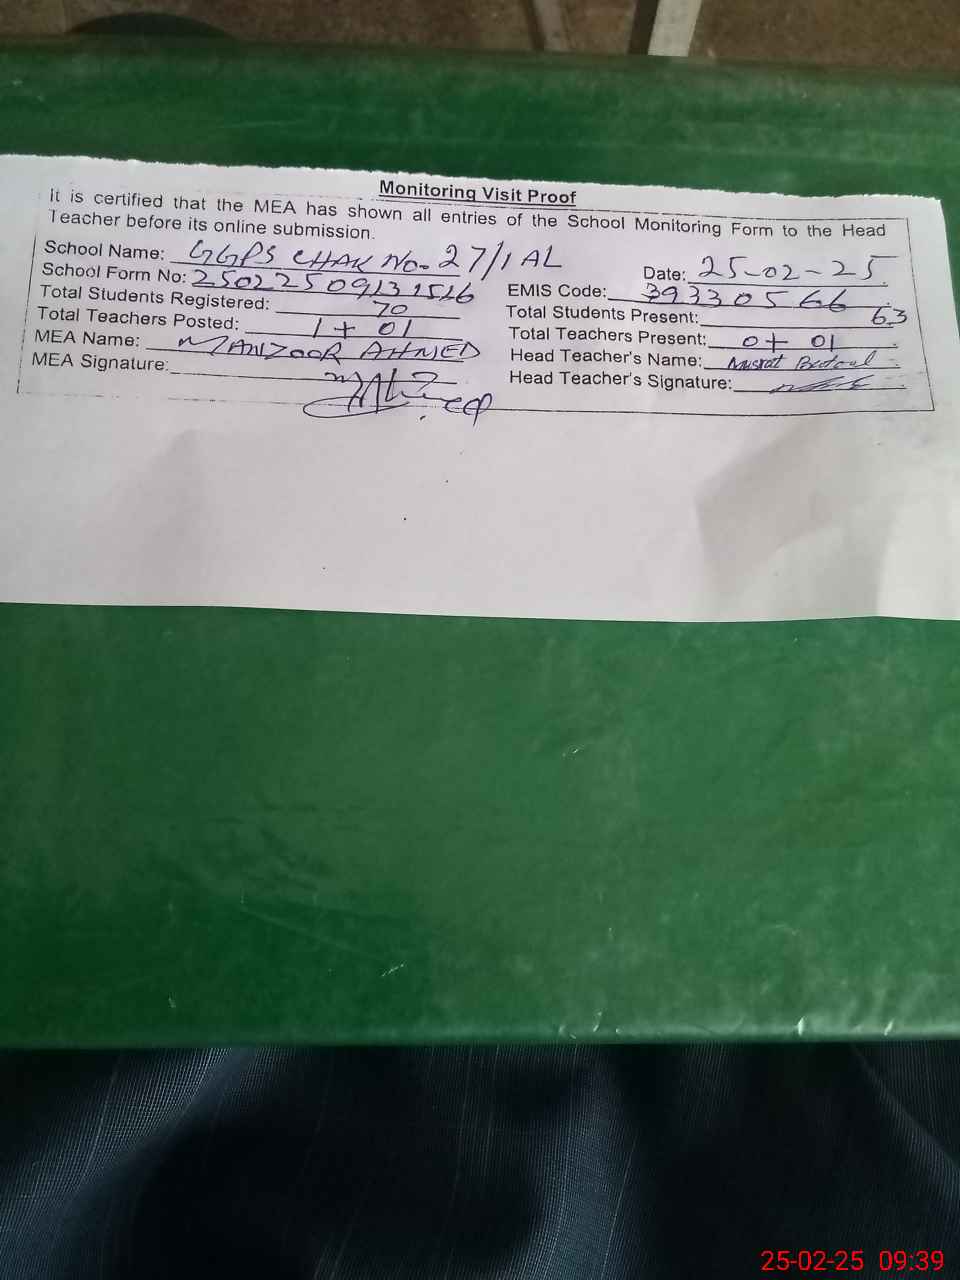 Monitoring Visit Proof
It is certified that the MEA has shown all entries of the School Monitoring Form to the Head
Teacher before its online submission.
School Name: GGPS CHAK No. 27/1AL Date: 25-02-25
School Form No: 25022509131526 EMIS Code: 39330566
Total Students Registered: 70 Total Students Present: 63
Total Teachers Posted: 1 + 01 Total Teachers Present: 0 + 01
MEA Name: MANZOOR AHMED Head Teacher's Name: Musrat
MEA Signature: Head Teacher's Signature:
25-02-25 09:39